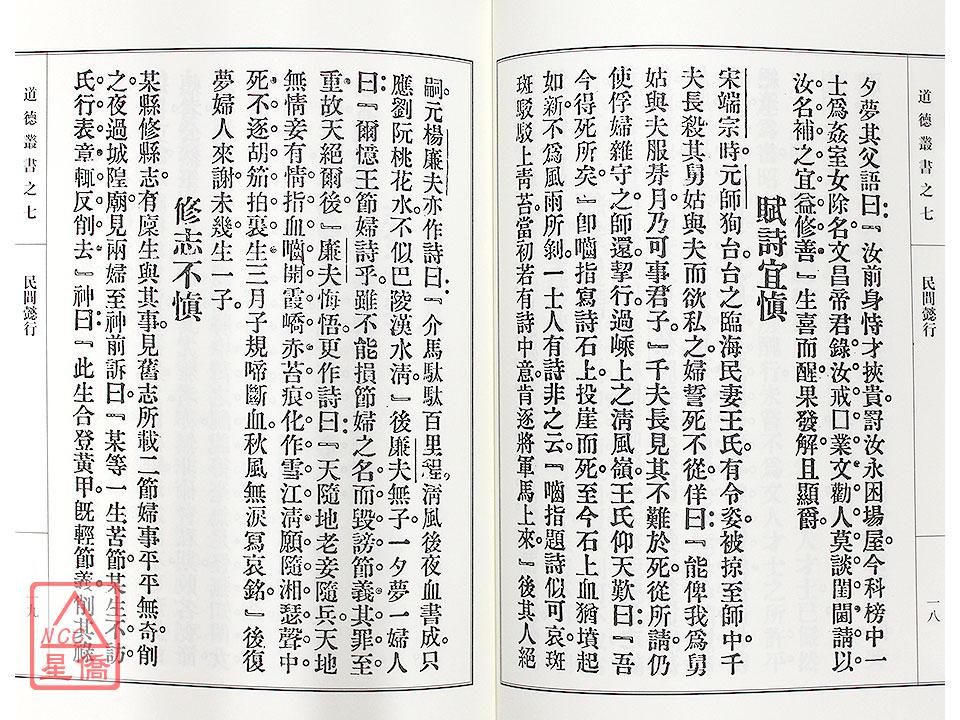 道德叢書之七 民間懿行 一八
夕夢其父語曰：『汝前身恃才挾貴罸汝永困場屋。今科榜中一
士爲姦室女除名文昌帝君錄汝戒口業文勸人莫談閨閫請以
汝名補之宜益修善』生喜而醒果發解且顯爵
賦詩宜慎
宋端宗時。元師狗台。台之臨海民妻王氏有令姿。被掠至師中千
夫長殺其舅姑與夫而欲私之。婦誓死不從。佯曰：『能俾我爲舅
姑與夫服朞月。乃可事君子。』千夫長見其不難於死。從所請仍
使俘婦雜守之。師還。挈行。過嵊上之淸風嶺。王氏仰天歎曰：『吾
今得死所矣』卽嚙指寫詩石上。投崖而死至今石上血猶墳起
如新。不爲風雨所剝。一士人有詩非之云。『嚙指題詩似可哀。斑
斑駁駁上靑苔。當初若有詩中意。肯逐將軍馬上來。』後其人絕
嗣。元楊廉夫亦作詩曰：『介馬馱馱百里程。淸風後夜血書成。只
應劉阮桃花水。不似巴陵漢水淸。』後廉夫無子。一夕夢一婦人
曰：『爾憶王節婦詩乎。雖不能損節婦之名。而毀謗節義。其罪至
重。故天絕爾後』廉夫悔悟。更作詩曰：『天隨地老妾隨兵。天地
無情妾有情。指血嚙開霞嶠赤。苔痕化作雪江淸。願隨湘瑟聲中
死。不逐胡笳拍裏生。三月子規啼斷血。秋風無淚寫哀銘。』後復
夢婦人來謝。未幾生一子。
修志不慎
某縣修縣志。有廩生與其事。見舊志所載二節婦事平平無奇。削
之。夜過城隍廟。見兩婦至神前訴曰：『某等一生苦節。某生不訪
氏行表章。輒反削去』神曰：『此生合登黃甲。旣輕節義。削其祿
道德叢書之七 民間懿行 一九
NCC
星僑